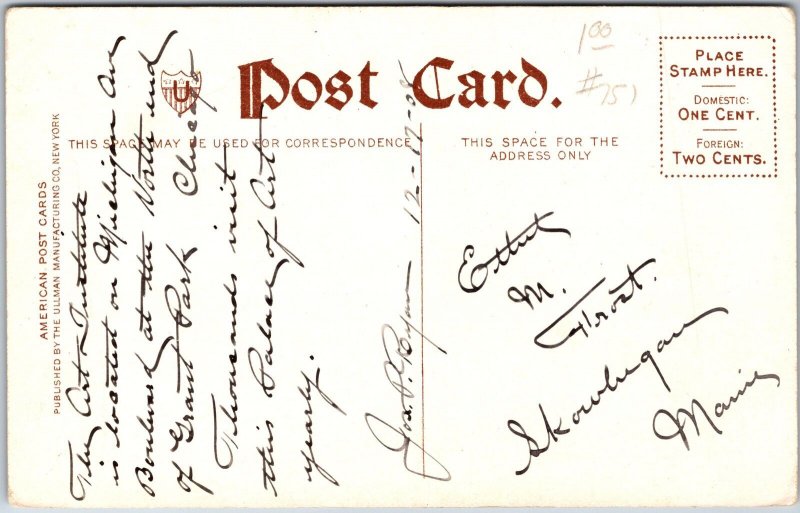 Post Card.
THIS SPACE MAY BE USED FOR CORRESPONDENCE
THIS SPACE FOR THE
ADDRESS ONLY
PLACE
STAMP HERE.
DOMESTIC:
ONE CENT.
FOREIGN:
TWO CENTS.
AMERICAN POST CARDS
PUBLISHED BY THE ULLMAN MANUFACTURING CO., NEW YORK
U
1.00
#751
The Art Institute
is located on Michigan Ave
Boulvard at the North end
of Grant Park Chicago
Thousands visit
this Palace of Art
yearly.
Jos. P. Ryan 12-17-08
Ethel
M.
Frost.
Skowhegan
Maine